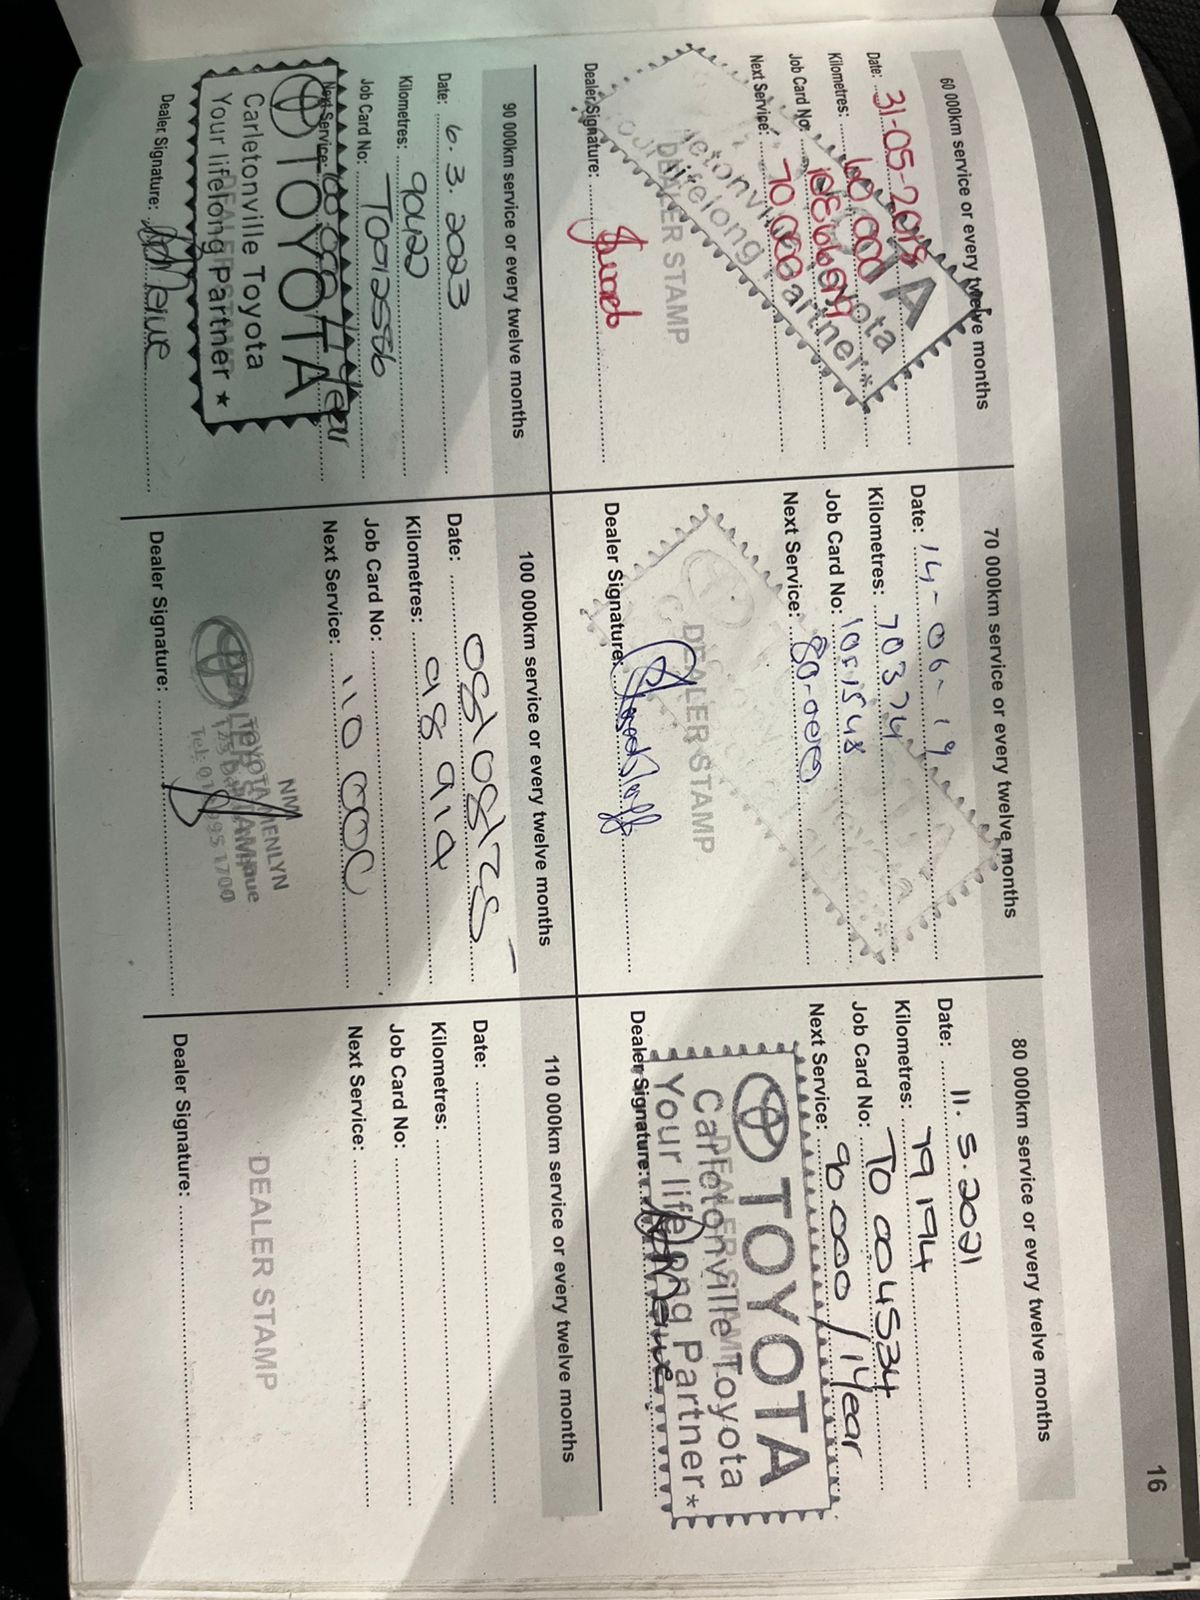 16
60 000km service or every twelve months
Date: 31-05-2018
Kilometres: 60 000
Job Card No:
Next Service: 70 000
DEALER STAMP
Lifelong Partner *
Dealer Signature:
70 000km service or every twelve months
Date: 14-06-19
Kilometres: 70374
Job Card No:
Next Service: 80-000
DEALER STAMP
Dealer Signature:
80 000km service or every twelve months
Date: 11.5.2021
Kilometres: 79 194
Job Card No: T0 004534
Next Service: 90 000 / 1 Year
TOYOTA
Carletonville Toyota
DEALER STAMP
Your lifelong Partner *
Dealer Signature:
90 000km service or every twelve months
Date: 6.3.2023
Kilometres: 90422
Job Card No: T0012556
Next Service: 100 000 / 1 Year
TOYOTA
Carletonville Toyota
DEALER STAMP
Your lifelong Partner ★
Dealer Signature:
100 000km service or every twelve months
Date: 08/08/25
Kilometres: 98 919
Job Card No:
Next Service: 110 000
DEALER STAMP
NM
TOYOTA MENLYN
Dealer Signature:
110 000km service or every twelve months
Date:
Kilometres:
Job Card No:
Next Service:
DEALER STAMP
Dealer Signature: